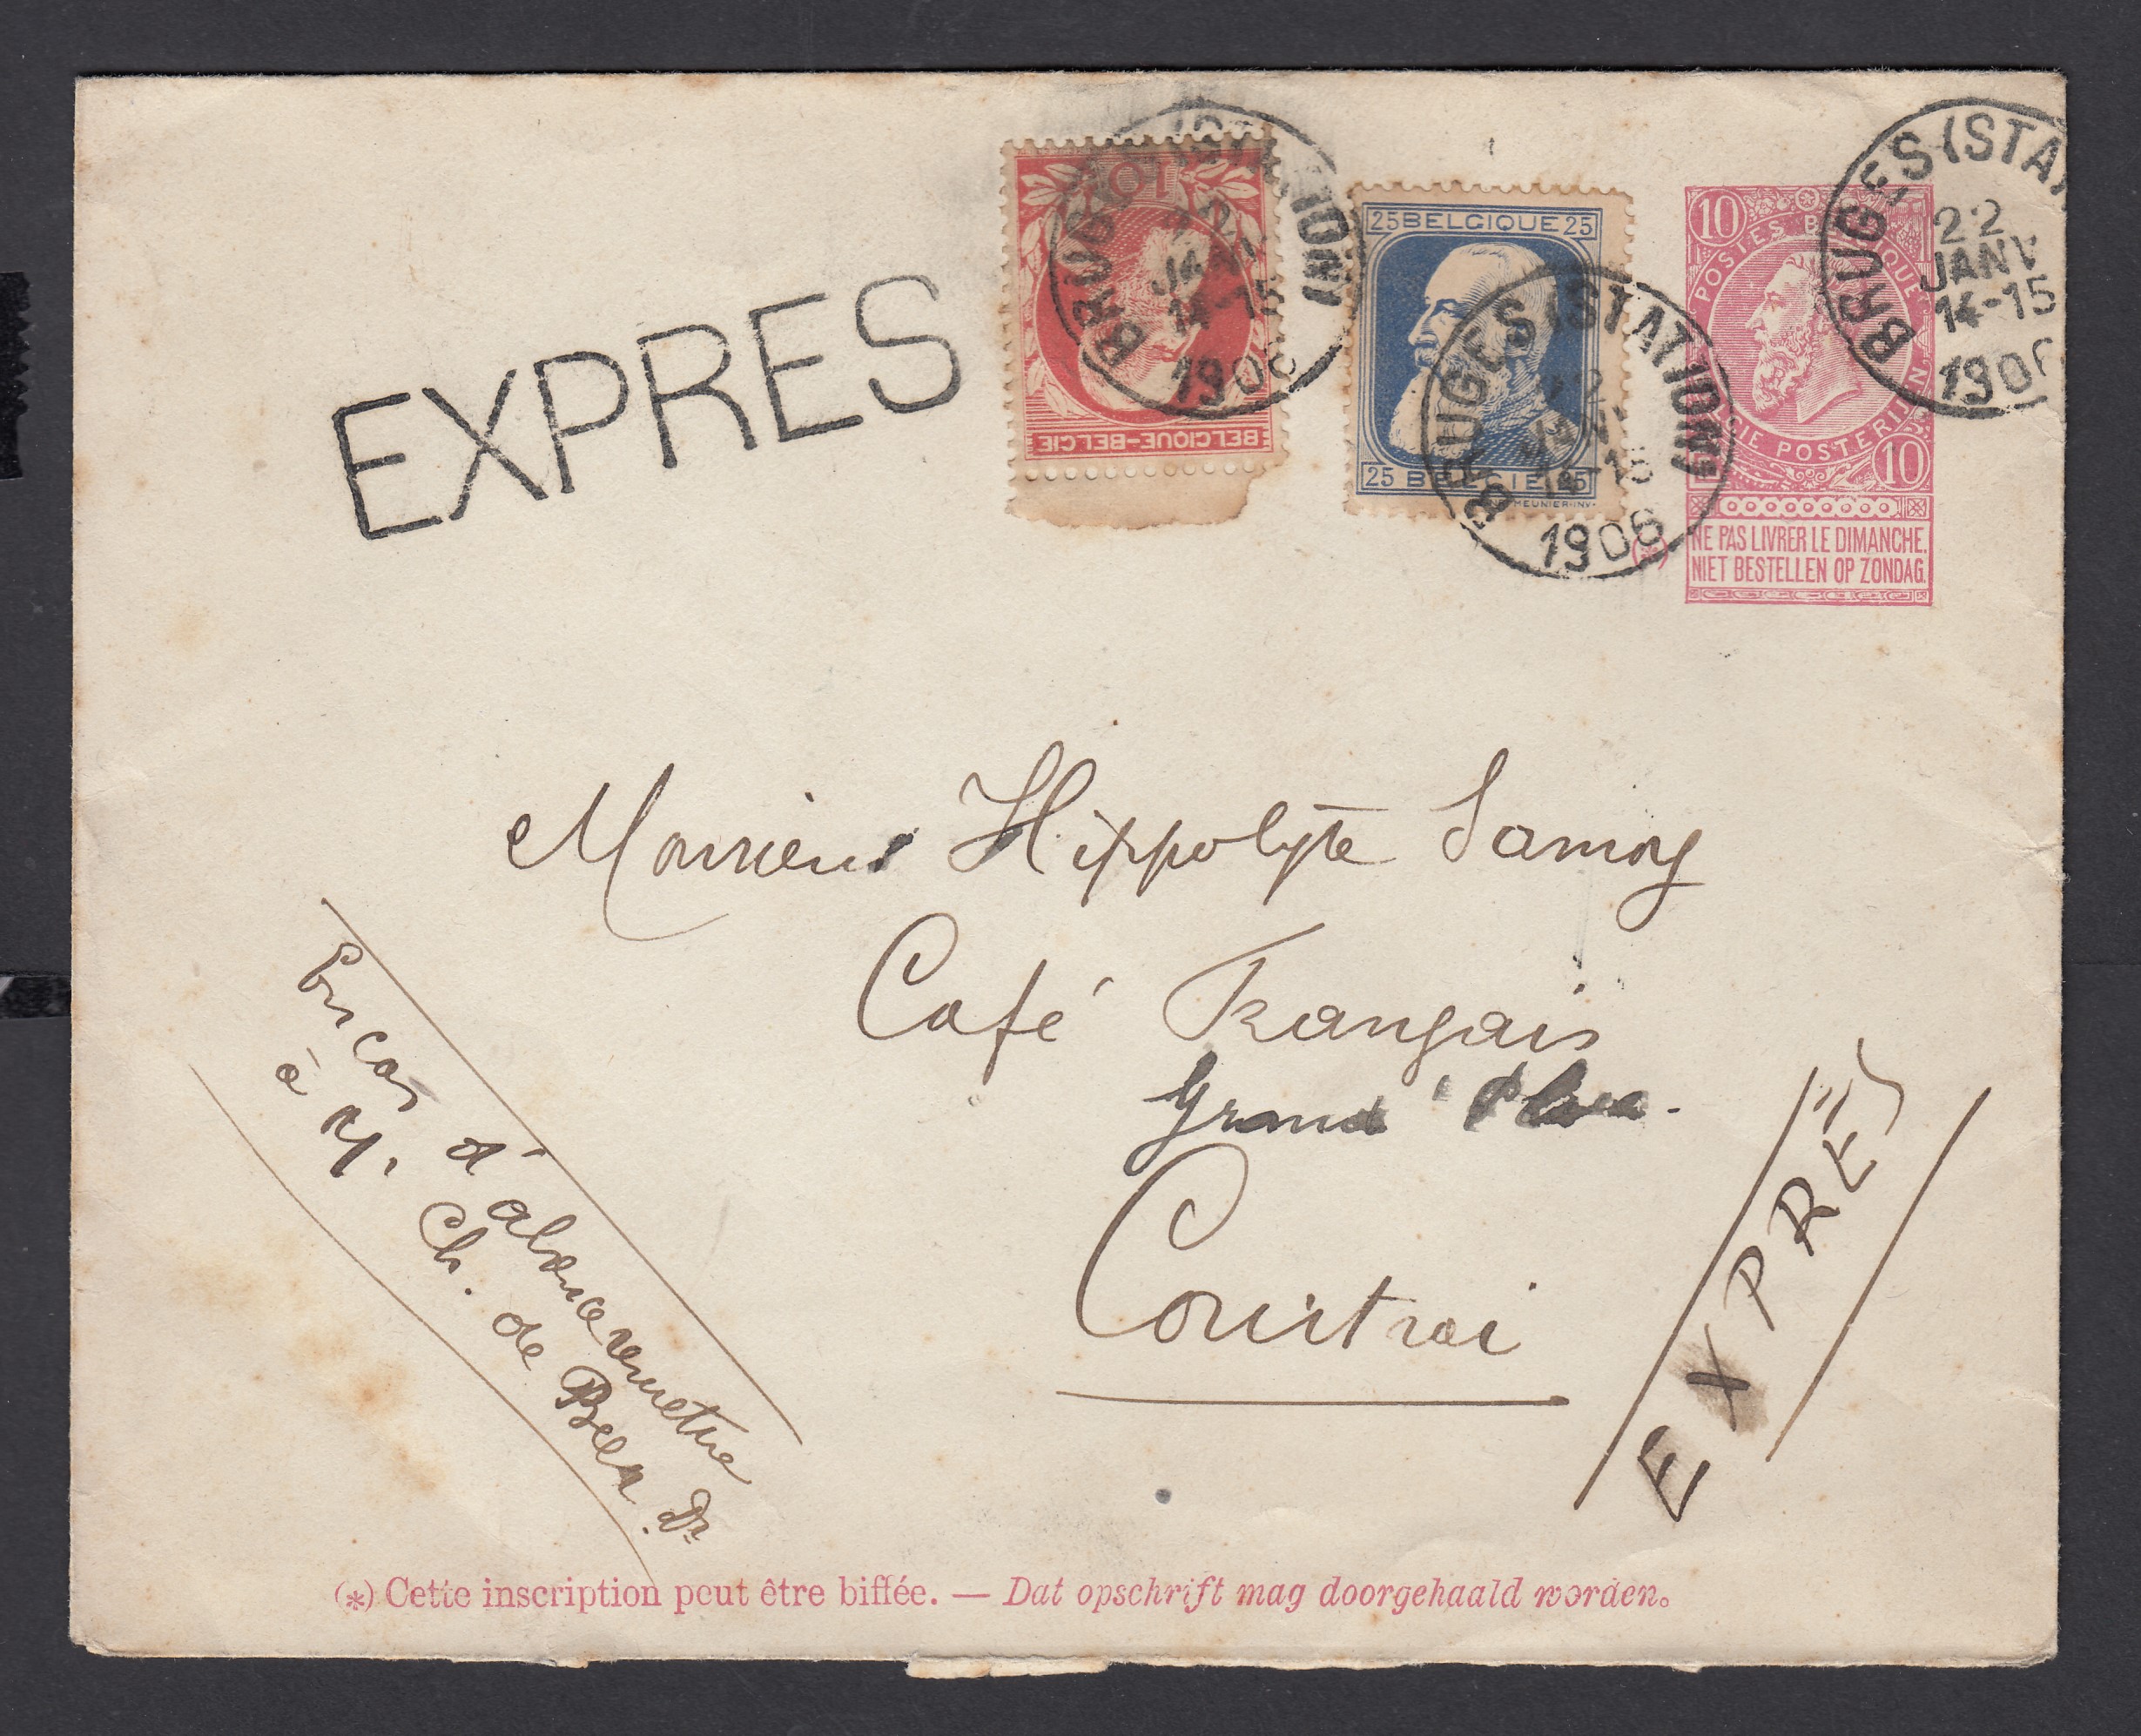 EXPRES
10
BELGIQUE-BELGIE
BRUGES (STATION)
22
JANV
14-15
1906
25 BELGIQUE 25
25 BELGIE 25
MEUNIER INV.
BRUGES (STATION)
22
14-15
1906
10
POSTES BELGIQUE
BELGIE POSTERIJEN
10
(*) NE PAS LIVRER LE DIMANCHE.
NIET BESTELLEN OP ZONDAG.
BRUGES (STA
22
JANV
14-15
190
Monsieur Hippolyte Samoy
Café Français
Grand'Place.
Courtrai
EXPRÈS
En cas d'absence remettre
à M. Ch. de Beer. Dr
(*) Cette inscription peut être biffée. — Dat opschrift mag doorgehaald worden.